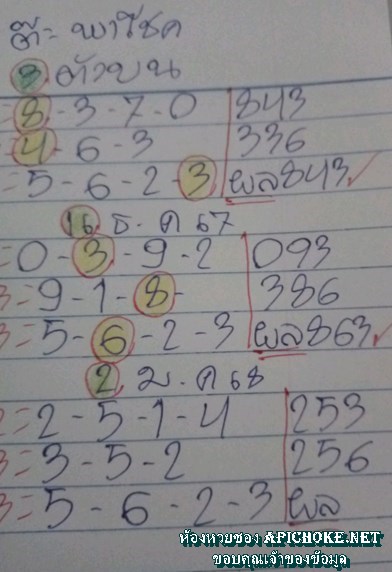 ต๊ะ พาโชค
3 ตัวบน
=8-3-7-0 843
=4-6-3 336
=5-6-2-3 ผล843✓
16 ธ.ค 67
=0-3-9-2 093
3=9-1-8- 386
3=5-6-2-3 ผล863✓
2 ม.ค 68
=2-5-1-4 253
3=3-5-2 256
3=5-6-2-3 ผล
ห้องหวยซอง APICHOKE.NET
ขอบคุณเจ้าของข้อมูล